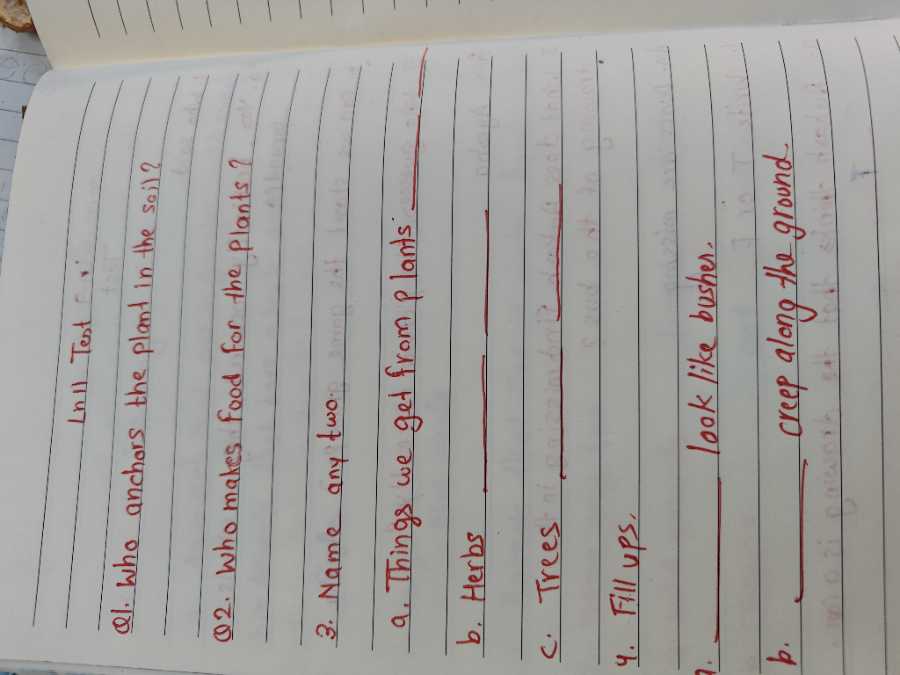 Ln 11 Test
Q1. Who anchors the plant in the soil?
Q2. Who makes food for the plants?
3. Name any two.
a. Things we get from plants
b. Herbs
c. Trees
4. Fill ups.
look like bushes.
b. creep along the ground.